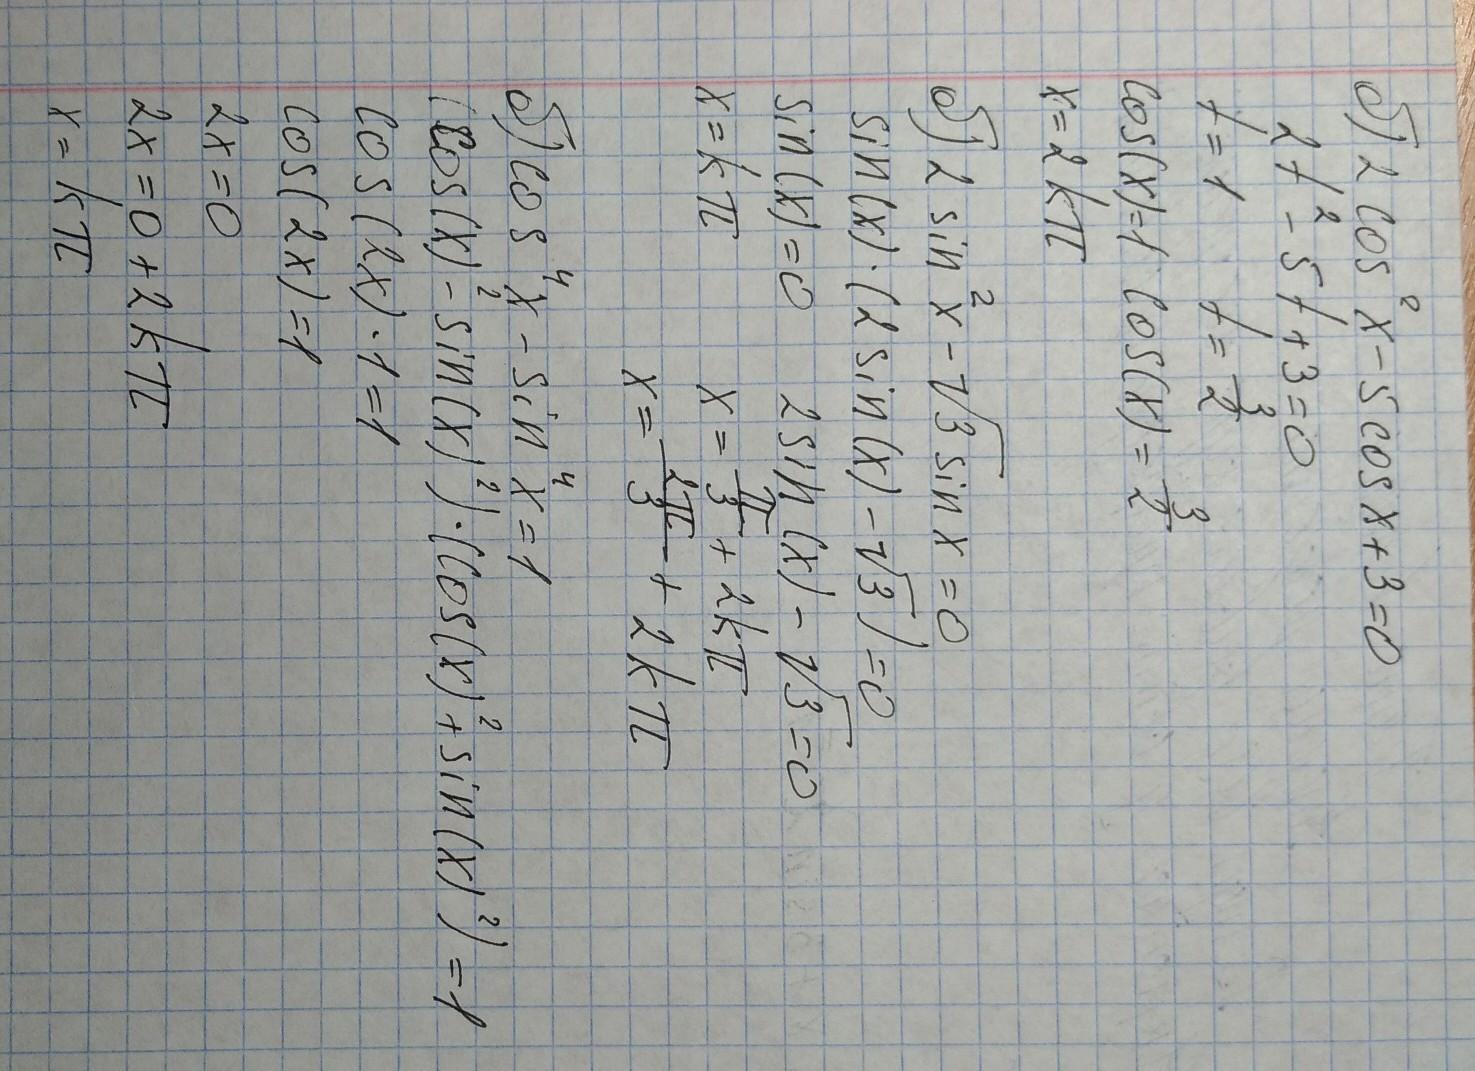 б) 2 cos² x - 5 cos x + 3 = 0
2t² - 5t + 3 = 0
t = 1 t = 3/2
cos(x) = 1 cos(x) = 3/2
x = 2kπ
б) 2 sin² x - √3 sin x = 0
sin(x) · (2 sin(x) - √3) = 0
sin(x) = 0 2 sin(x) - √3 = 0
x = kπ x = π/3 + 2kπ
x = 2π/3 + 2kπ
б) cos⁴ x - sin⁴ x = 1
(cos(x)² - sin(x)²) · (cos(x)² + sin(x)²) = 1
cos(2x) · 1 = 1
cos(2x) = 1
2x = 0
2x = 0 + 2kπ
x = kπ